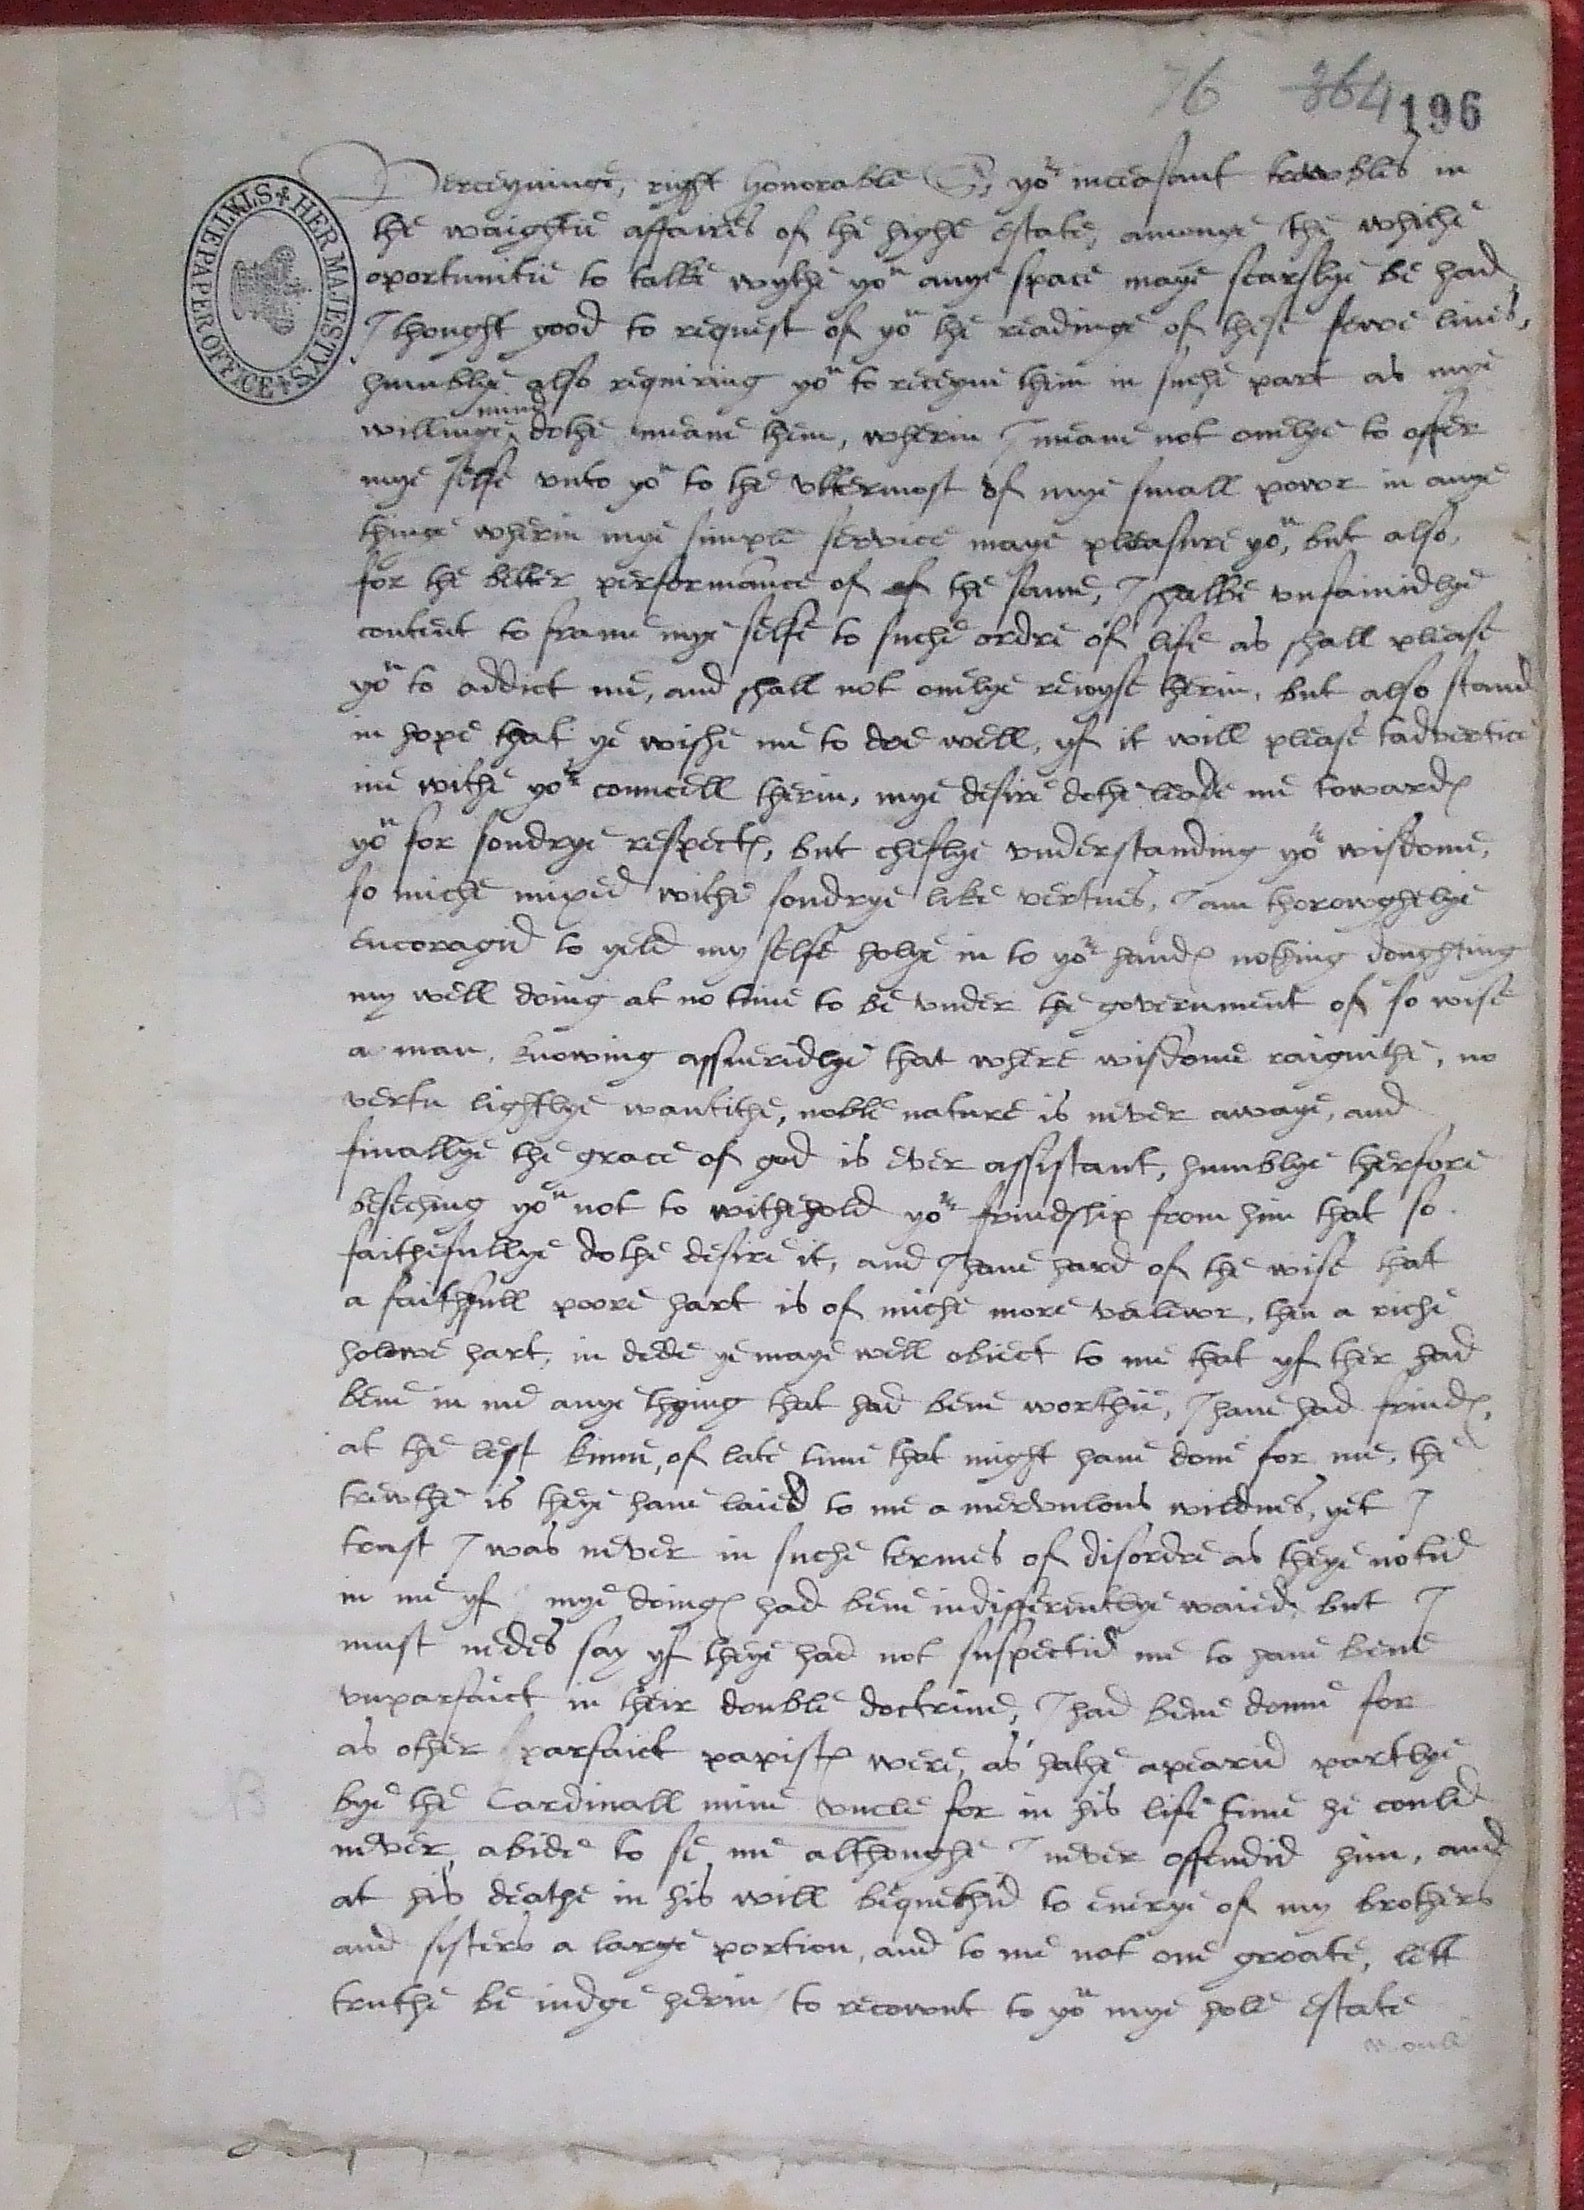 76 364 196
HER MAJESTY'S STATE PAPER OFFICE
Perceyuinge, right honorable Sr, yor inceasant trowbles in
the waightie affaires of the highe estate, amonge the whiche
oportunitie to talke wythe you anye space maye scarslye be had,
I thought good to request of you the readinge of these fewe lines,
humblye also requiring you to receyue them in suche part as mye
mind
willinge ^ dothe meane them, wherin I meane not onelye to offer
mye selfe vnto you to the vttermost of mye small powr in anye
thinge wherin mye simple service maye pleasure you, but also,
for the better performance of of the same, I shalbe vnfainidlye
content to frame mye selfe to suche ordre of life as shall please
you to addict me, and shall not onelye reioyse therin, but also stand
in hope that ye wishe me to doe well, yf it will please tadvertice
me withe yor councell therin, mye desire dothe leade me towardes
you for sondrye respectes, but cheflye vnderstanding yor wisdome,
so miche mixed withe sondrye like vertues, I am thorowghtlye
encoragid to yeld my selfe holye in to yor handes nothing doughting
my well doing at no time to be vnder the government of so wise
a man, knowing assuridlye that where wisdome raignithe, no
vertu lightlye wantithe, noble nature is never awaye, and
finallye the grace of god is ever assistant, humblye therfore
beseching you not to withehold yor frindship from him that so
faithefullye dothe desire it, and I haue hard of the wise that
a faithfull poore hart is of miche more valewr, then a riche
holowe hart, in dede ye maye well obiect to me that yf ther had
bene in me anye thying that had bene worthie, I haue had frindes,
at the lest kinne, of late time that might haue done for me, the
trewthe is theye haue laied to me a mervulous wildnes, yet I
trust I was never in suche termes of disordre as theye notid
in me yf mye doinges had bene indifferentlye waied, but I
must nedes say yf theye had not suspectid me to haue bene
vnparfaict in their double doctrine, I had bene donne for
as other parfaict papistes were, as hathe apearid partlye
bye the Cardinall mine vncle for in his life time he could
never abide to se me althoughe I never offendid him, and
at his deathe in his will bequethid to euerye of my brothers
and sisters a large portion, and to me not one groate, lett
truthe be iudge herin / to recownt to you mye hole estate
would